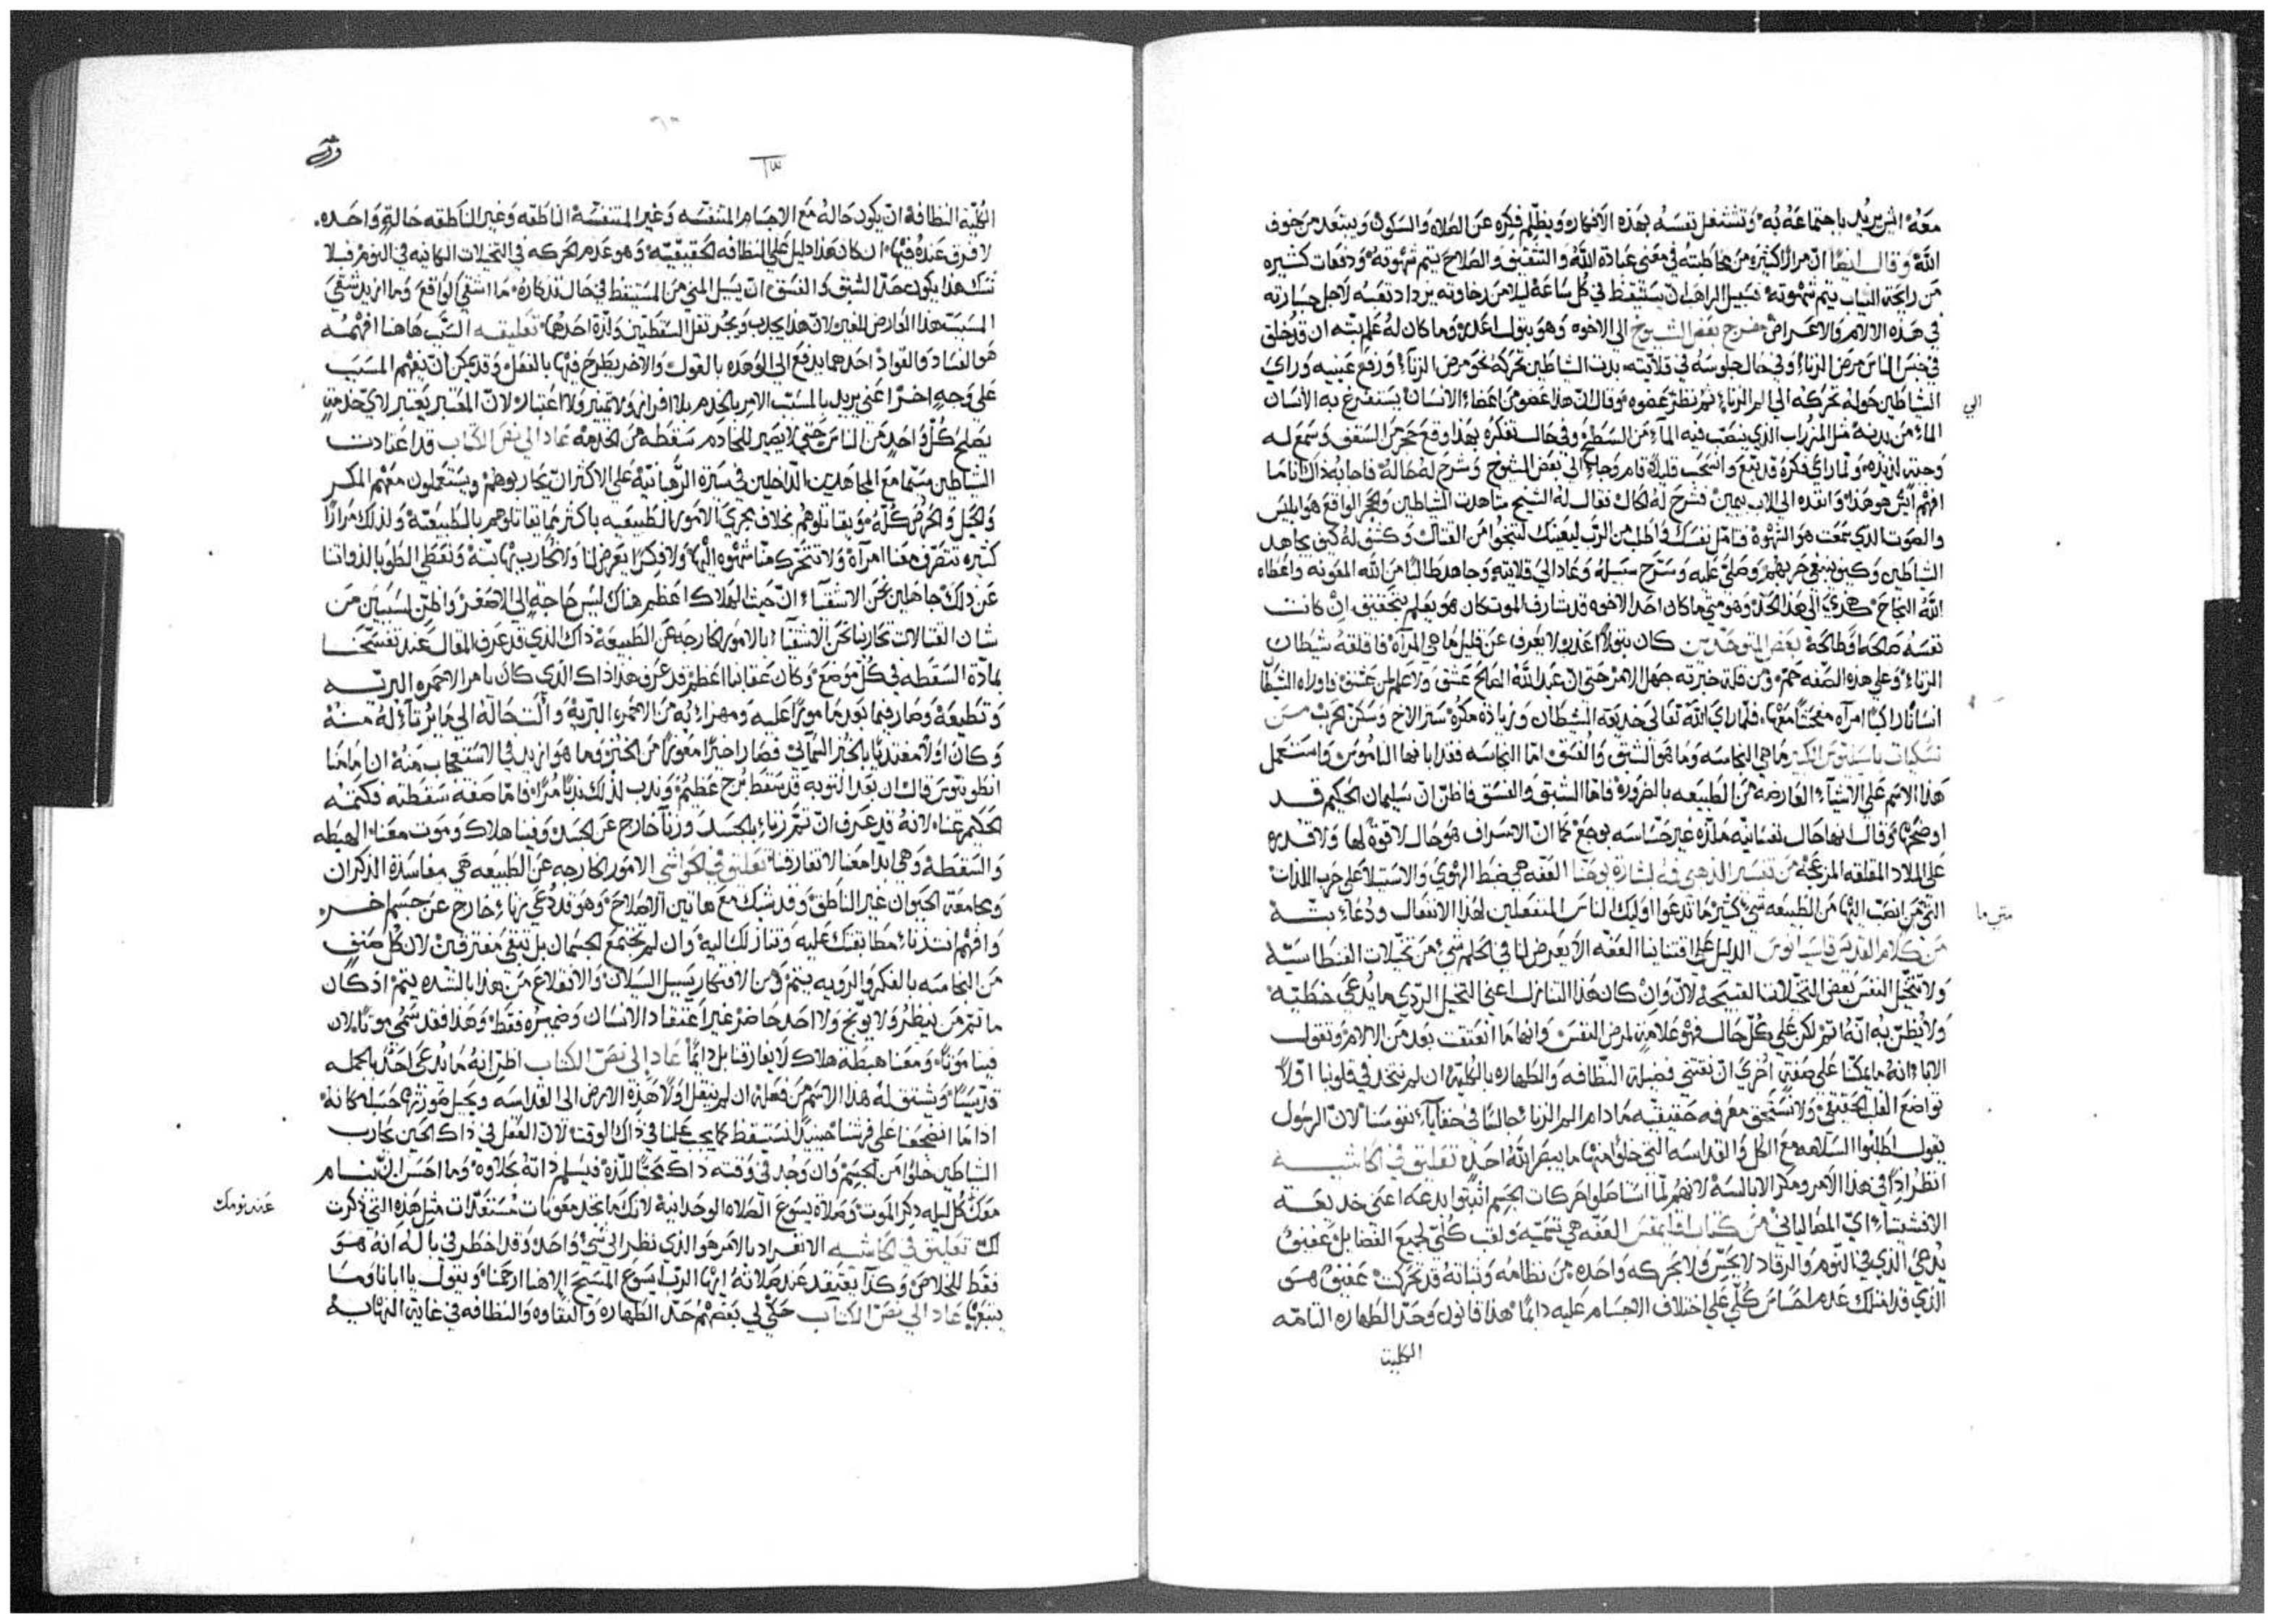 معه اش يريد باجتماعه به وتشتغل نفسه بهذه الافكار ويظلم فكره عن الصلاه والسكون ويبتعد من خوف
الله وقال ايضا ان مرارا كثيره من مخاطبته في معنى عبادة الله والتعفف والصلاح يتم شهوته ودفعات كثيره
من رايحة الثياب يتم شهوته فسبيل الراهب ان يستيقظ في كل ساعة ليلا من رخاوته يزداد نفسه لاجل جسارته
في هذه الالام والاعراض بعض الشيوخ الى الاخوه وهو يقول وما كان له علم بته ان قد خلق
في جنس الناس مرض الزناء وفي حال جلوسه في قلايته بدت الشياطين تحركه نحو مرض الزناء ورفع عينيه وراى
الشياطين حوله تحركه الى الم الزناء ثم نظر عضوه وقال ان هذا عضو من اعضاء الانسان يستفرغ به الانسان
الى
الماء من بدنه مثل المزراب الذي ينصب فيه الماء من السطح وفي حال تفكره بهذا وقع حجر من السقف وسمع له
وجبة لذيذه ولما راى فكره قد وانسحب قليلا قام وجاء الى بعض الشيوخ وشرح له حاله فاجابه ذاك اناما
افهم ايش هو هذا وانفذه الى الاب بيمين فشرح له الحال فقال له الشيخ شاهدت الشياطين والحجر الواقع هو ابليس
والصوت الذي سمعت هو الشهوة فتامل نفسك واطلب من الرب ليعينك لتنجوا من القتال وكشف له كيف يجاهد
الشياطين وكيف ينبغي حربهم وصلى عليه وسرح سبيله وعاد الى قلايته وجاهد طالبا من الله المعونه واعطاه
الله النجاح الى هذا الحد وهو متى ما كان احد الاخوه قد شارف الموت كان هو يعلم بتحقيق ان كانت
نفسه صالحه او طالحة بعض المتوحدين كان بتولا لا يعرف عن قليل ما هي المرآه فاقلقه شيطان
الزناء وعلى هذه الصفه ومن قلة خبرته جهل الامر حتى ان عبد الله الصالح عشق ولا علم لمن عشق فاوراه الشيطان
انسانا راكبا امرآه مضجعا معها فلما راى الله تعالى خديعة الشيطان وزيادة مكره ستر الاخ وسكن الحرب من
باسيليوس الكبير ما هي النجاسه وما هو الشبق والفسق اما النجاسه فقد ابانها الناموس واستعمل
هذا الاسم على الاشياء العارضة من الطبيعه بالضرورة فاما الشبق والفسق فاظن ان سليمان الحكيم قد
اوضحهما وقال انها حال نفسانيه ملذه غير حساسه بوجع كما ان الاسراف هو حال لا قوة لها ولا قدره
على الملاذ المقلقه المزعجة من تفسير الذهبي فمه لبشارة يوحنا العفه هي ضبط الهوى والاستيلا على حرب اللذات
التي من انصب اليها من الطبيعه شي كثير ما تدعوا اوليك الناس المنفعلين لهذا الانفعال ودعاء بته
متى ما
من كلام القديس قاسيانوس الدليل على اقتنايا العفه الا يعرض لنا في الحلم شي من تخيلات الفنطاسيه
ولا تتخيل النفس بعض التخيلات القبيحة لان وان كان هذا التنازل اعني التخيل الردي ما يدعى خطيه
ولا يظن به انه اثم لكن على كل حال فهو علامة لمرض النفس وانها ما انعتقت بعد من الالام وتقول
الاباء انه ما يمكنا على صفة اخرى ان نقتني فضيلة النظافه والطهاره بالكلية ان لم نتخذ في قلوبنا اولا
تواضع القلب الحقيقي ولا نستحق معرفه حقيقيه ما دام الم الزناء جالسا في خفايا نفوسنا لان الرسول
يقول اطلبوا السلامه مع الكل والقداسه التي خلوا منها ما يبصر الله احد تعليق في الحاشيه
انظر اذا في هذا الامر ومكر الابالسه لانهم لما استاصلوا حركات الجسم اثبتوا بدعه اعني خديعة
الافشتاء اي المصالياني من كتاب اقليمقس العفه هي تسميه ولقب كلي لجميع الفضايل عفيف
يدعى الذي في النوم والرقاد لا يحس ولا بحركه واحده من نظامه وثباته قد تحركت عفيف هو
الذي قد امتلك عدم احساس كلي على اختلاف الاجسام عليه دايما هذا قانون وحد الطهاره التامه
الكليه
٦٣
الكليه النظافه ان يكون حاله مع الاجسام المتنفسه وغير المتنفسه الناطقه وغير الناطقه حالة واحده
لا فرق عنده فيها ان كان هذا دليل على النظافه الحقيقيه وهو عدم الحركه في التخيلات الكاينه في النوم فبلا
شك هذا يكون حد الشبق والفسق ان يسيل المني من المستيقظ في حال تذكاره ما اشقى الواقع وما ازيد شقى
المسبب هذا العارض للغير لان هذا يجذب ويجر ثقل السقطتين ولذة احدهما تعليقه السبب هاهنا افهمه
هو الفساد والقواد احدهما يدفع الى الوهده بالقول والاخر يطرح فيها بالفعل وقد يمكن ان تفهم المسبب
على وجه اخر اعني يريد بالمسبب الامر بالخدم بلا افراز ولا تمييز ولا اعتبار لان المعتبر يعتبر لاي خدمة
يصلح كل واحد من الناس حتى لا يصير للخادم سقطه من الخدمه عاد الى نص الكتاب قد اعتادت
الشياطين سيما مع المجاهدين الداخلين في سيرة الرهبانيه على الاكثر ان يحاربوهم ويستعملون معهم المكر
والحيل والحرص كله ويقاتلوهم بخلاف مجرى الامور الطبيعيه باكثر مما تقاتلوهم بالطبيعيه ولذلك مرارا
كثيره تتصرف معنا امرآه ولا تتحرك منا شهوه اليها ولا فكرا يعرض لنا ولا نحارب بها بتة ونعطي الطوبا لذواتنا
عن ذلك جاهلين نحن الاشقياء ان حيث الهلاك اعظم هناك ليس حاجة الى الاصغر واظن لسببين من
شان القتالات تحاربنا نحن الاشقياء بالامور الخارجه عن الطبيعة ذاك الذي قد عرف المقال عند تفسحنا
بمادة السقطه في كل موضع وكان عقابنا اعظم قد عرف هذا ذاك الذي كان يامر الاحمره البريه
وتطيعه وصار فيما بعد مامورا عليه ومهزاء به من الاحمره البريه والتحاله الى ما يرثا له منه
وكان اولا مغتذيا بالخبز السمائي فصار اخيرا معوزا من الخبز وما هو ازيد في الاستعجاب منه ان امامنا
انطونيوس قال ان بعد التوبه قد سقط برج عظيم وندب لذلك ندبا مرا فاما صفة سقطته فكتمه
الحكيم عنا لانه قد عرف ان ثم زناء بالجسد وزناء خارج عن الجسد وفينا هلاك وموت معناه الهبطه
والسقطه وهي ابدا معنا لا تفارقنا تعليق في الحواشي الامور الخارجه عن الطبيعه هي مفاسدة الذكران
ومجامعة الحيوان غير الناطق وقد شبك مع هاتين الاصلاح وهو قد دعي زناء خارج عن جسم اخر
وافهم انت زناء مطابقتك عليه وتنازلك اليه وان لم تجتمع الجسمان بل تبقى مفترقين لان كل صنف
من النجاسه بالفكر والرويه يتم ومن الافتكار يسيل السيلان والانقلاع من هذا بالشده يتم اذ كان
ما ثم من ينظر ولا يوبخ ولا احد حاضر غير اعتقاد الانسان وضميره فقط وهذا فقد سمي موتا لان
فينا موتا ومعنا هبطة هلاك لا يفارقنا بل دايما عاد الى نص الكتاب اظن انه ما يدعى احد بالجمله
قديسا ويشتق له هذا الاسم من فعله ان لم ينقل اولا هذه الارض الى القداسه ويحيل صورتها حسب امكانه
اذا ما انضجعنا على فرشنا حينيذ لنستيقظ كما يجب علينا في ذاك الوقت لان العقل في ذاك الحين يحارب
الشياطين خلوا من الجسم وان وجد في وقته ذاك محبا للذه فيسلم ذاته بحلاوه وما احسن ان ينام
معك كل ليله ذكر الموت وصلاة يسوع الصلاه الوحدانيه لانك ما تجد معونات مسعدات مثل هذه التي ذكرت
عند نومك
لك تعليق في الحاشيه الانفراد بالامر هو الذي نظر الى شي واحد وقد اخطر في باله انه هو
فقط للخلاص وكذا يعتقد عند صلاته ايها الرب يسوع المسيح الاهنا ارحمنا ويقول يا ابانا وما
يتبعها عاد الى نص الكتاب حكى لي بعضهم حد الطهاره والنقاوه والنظافه في غاية النهايه